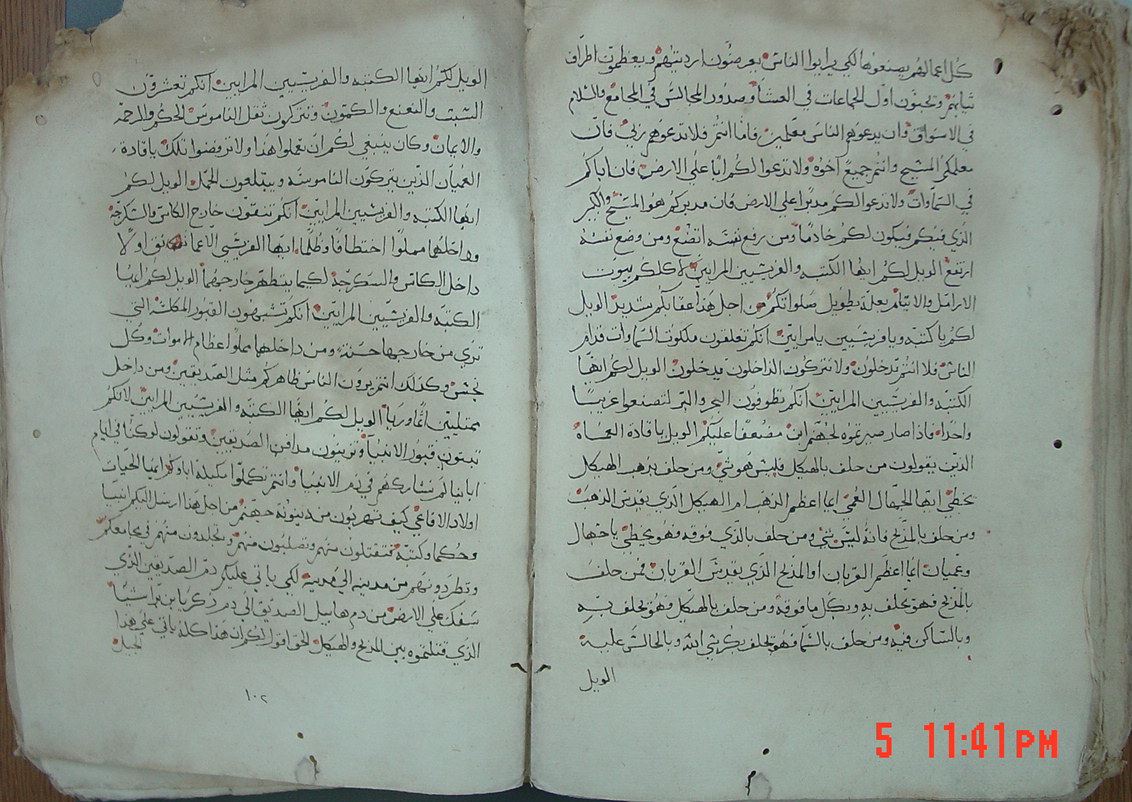 كل اعمالهم يصنعوها لكي يرايوا الناس يعرضون ارديتهم ويعظمون اطراف
ثيابهم ويحبون اول الجماعات في العشا وصدور المجالس في المجامع والسلام
في الاسواق وان يدعوهم الناس معلمين فاما انتم فلا تدعوهم ربي فان
معلمكم المسيح وانتم جميع اخوه ولا تدعوا لكم ابا علي الارض فان اباكم
في السماوات ولا تدعوا لكم مدبرا علي الارض فان مدبركم هو المسيح والكبير
الذي فيكم فيكون لكم خادما ومن رفع نفسه اتضع ومن وضع نفسه
ارتفع الويل لكم ايها الكتبه والفريسيين المرايين لاكلكم بيوت
الارامل والايتام بعلة تطويل صلواتكم من اجل هذا عقابكم شديد الويل
لكم يا كتبه ويا فريسيين يا مرايين انكم تغلقون ملكوت السماوات قدام
الناس فلا انتم تدخلون ولا تتركون الداخلون يدخلون الويل لكم ايها
الكتبه والفريسيين المرايين انكم تطوفون البحر والبر لتصنعوا غريبا
واحدا فاذا صار صيرتموه لجهنم ابن مضعفا عليكم الويل يا قادة العماه
الذين يقولون من حلف بالهيكل فليس هو شي ومن حلف بذهب الهيكل
يخطي ايها الجهال العمي ايما اعظم الذهب ام الهيكل الذي يقدس الذهب
ومن حلف بالمذبح فانه ليس شي ومن حلف بالذي فوقه فهو يخطي يا جهال
وعميان ايما اعظم القربان او المذبح الذي يقدس القربان فمن حلف
بالمذبح فهو يحلف به وبكل ما فوقه ومن حلف بالهيكل فهو يحلف به
وبالساكن فيه ومن حلف بالسما فهو يحلف بكرسي الله وبالجالس عليه
الويل
الويل لكم ايها الكتبه والفريسيين المرايين انكم تعشرون
الشبت والنعنع والكمون وتتركون ثقل الناموس الحكم والرحمه
والايمان وكان ينبغي لكم ان تعملوا هذا ولا ترفضوا تلك يا قادة
العميان الذين يتركون الناموسه ويبتلعون الجمل الويل لكم
ايها الكتبه والفريسيين المرايين انكم تنقون خارج الكاس والسكرجة
وداخلها مملوا اختطافا وظلما ايها الفريسي الاعما نق اولا
داخل الكاس والسكرجة لكيما يتطهر خارجهما الويل لكم ايها
الكتبه والفريسيين المرايين انكم تشبهون القبور المكلسة التي
تري من خارجها حسنة ومن داخلها مملوا عظام اموات وكل
نجس وكذلك انتم يرون الناس ظاهركم مثل الصديقين ومن داخل
ممتليين اثما وريا الويل لكم ايها الكتبه والفريسيين المرايين لانكم
تبنون قبور الانبيا وتزينون مدافن الصديقين وتقولون لو كنا في ايام
اباينا لم نشاركهم في دم الانبيا وانتم تكملوا مكيلة اباوكم ايها الحيات
اولاد الافاعي كيف تهربون من دينونة جهنم من اجل هذا ارسل اليكم انبيا
وحكما وكتبة فتقتلون منهم وتصلبون منهم وتجلدون منهم في مجامعكم
وتطردونهم من مدينه الي مدينه لكي ياتي عليكم دم الصديقين الذي
سفك علي الارض من دم هابيل الصديق الي دم زكريا بن براشيا
الذي قتلتموه بين المذبح والهيكل الحق اقول لكم ان هذا كله ياتي علي هذا
الجيل
١٠٢
5 11:41PM